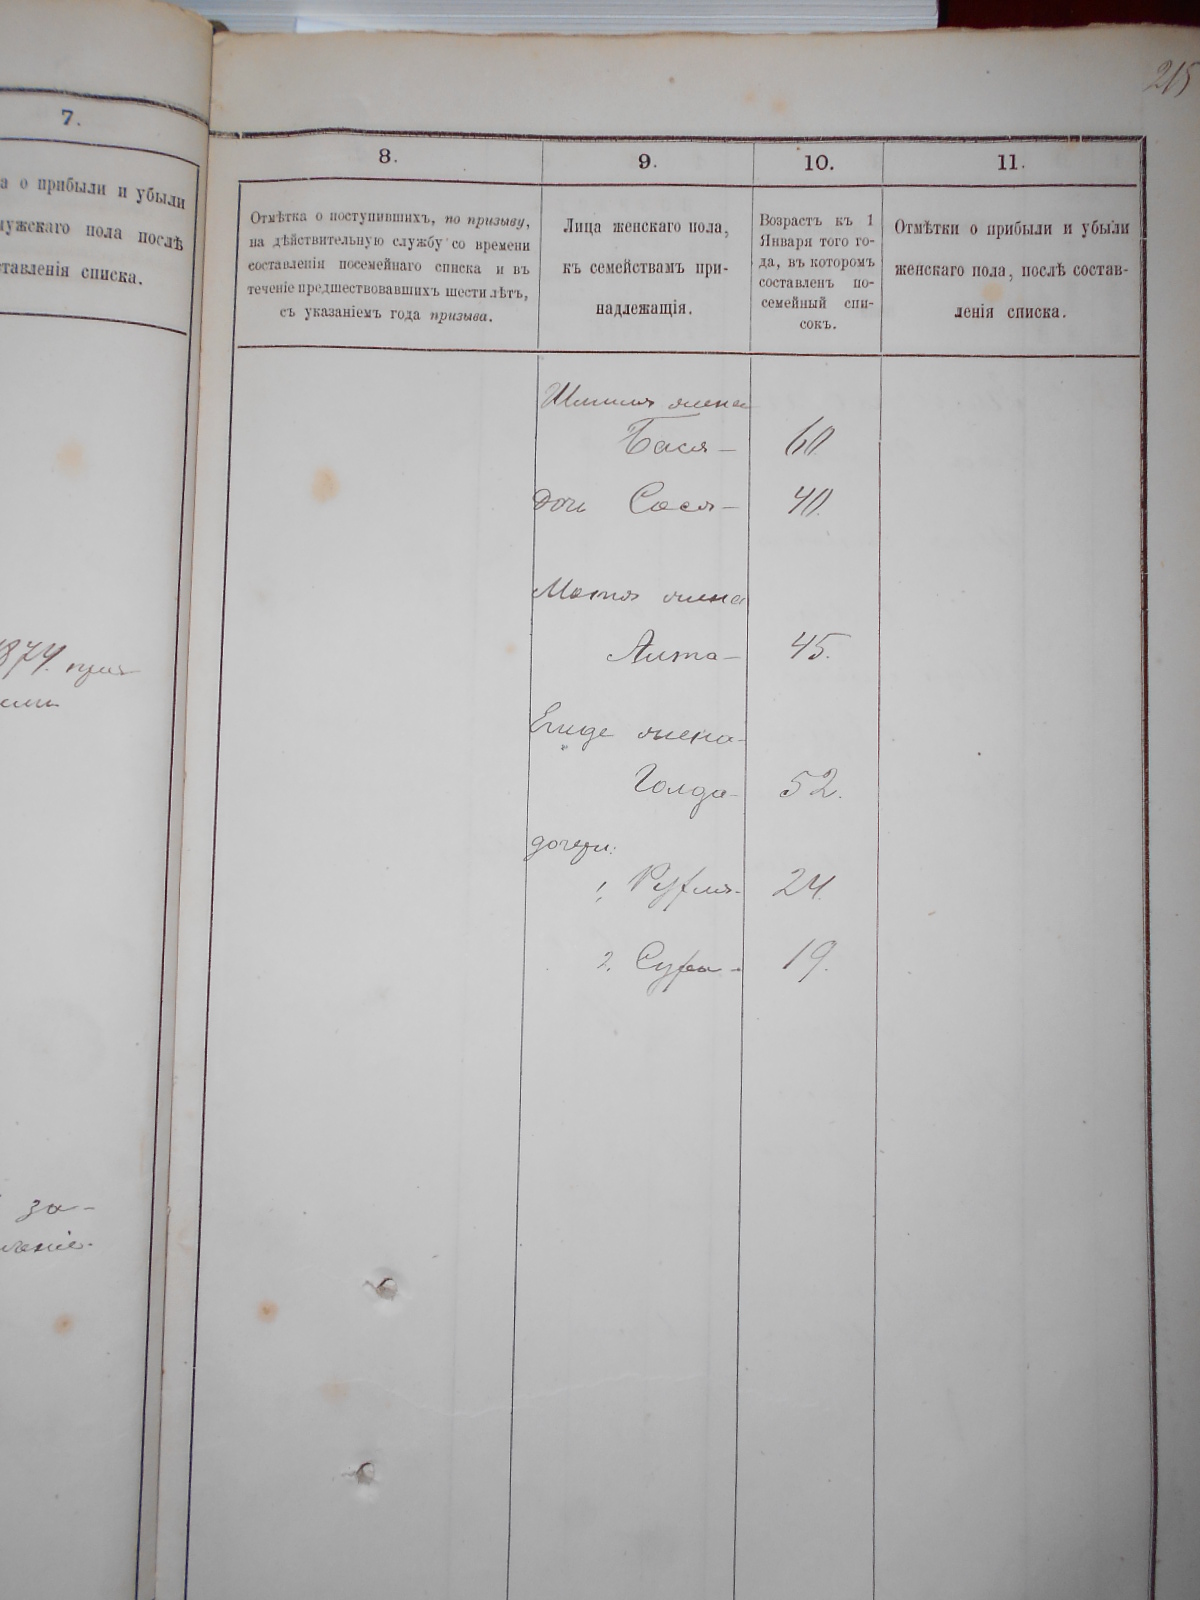 215
7.
а о прибыли и убыли
мужскаго пола послѣ
ставленія списка.
1874.
за-
8.
9.
10.
11.
Отмѣтка о поступившихъ, по призыву,
на дѣйствительную службу со времени
составленія посемейнаго списка и въ
теченіе предшествовавшихъ шести лѣтъ,
съ указаніемъ года призыва.
Лица женскаго пола,
къ семействамъ при-
надлежащія.
Возрастъ къ 1
Января того го-
да, въ которомъ
составленъ по-
семейный спи-
сокъ.
Отмѣтки о прибыли и убыли
женскаго пола, послѣ состав-
ленія списка.
жена
Бася- 60
Дочь Сося- 40.
жена
45.
жена-
Голда- 52.
дочери:
1, 24.
2. Сура- 19.